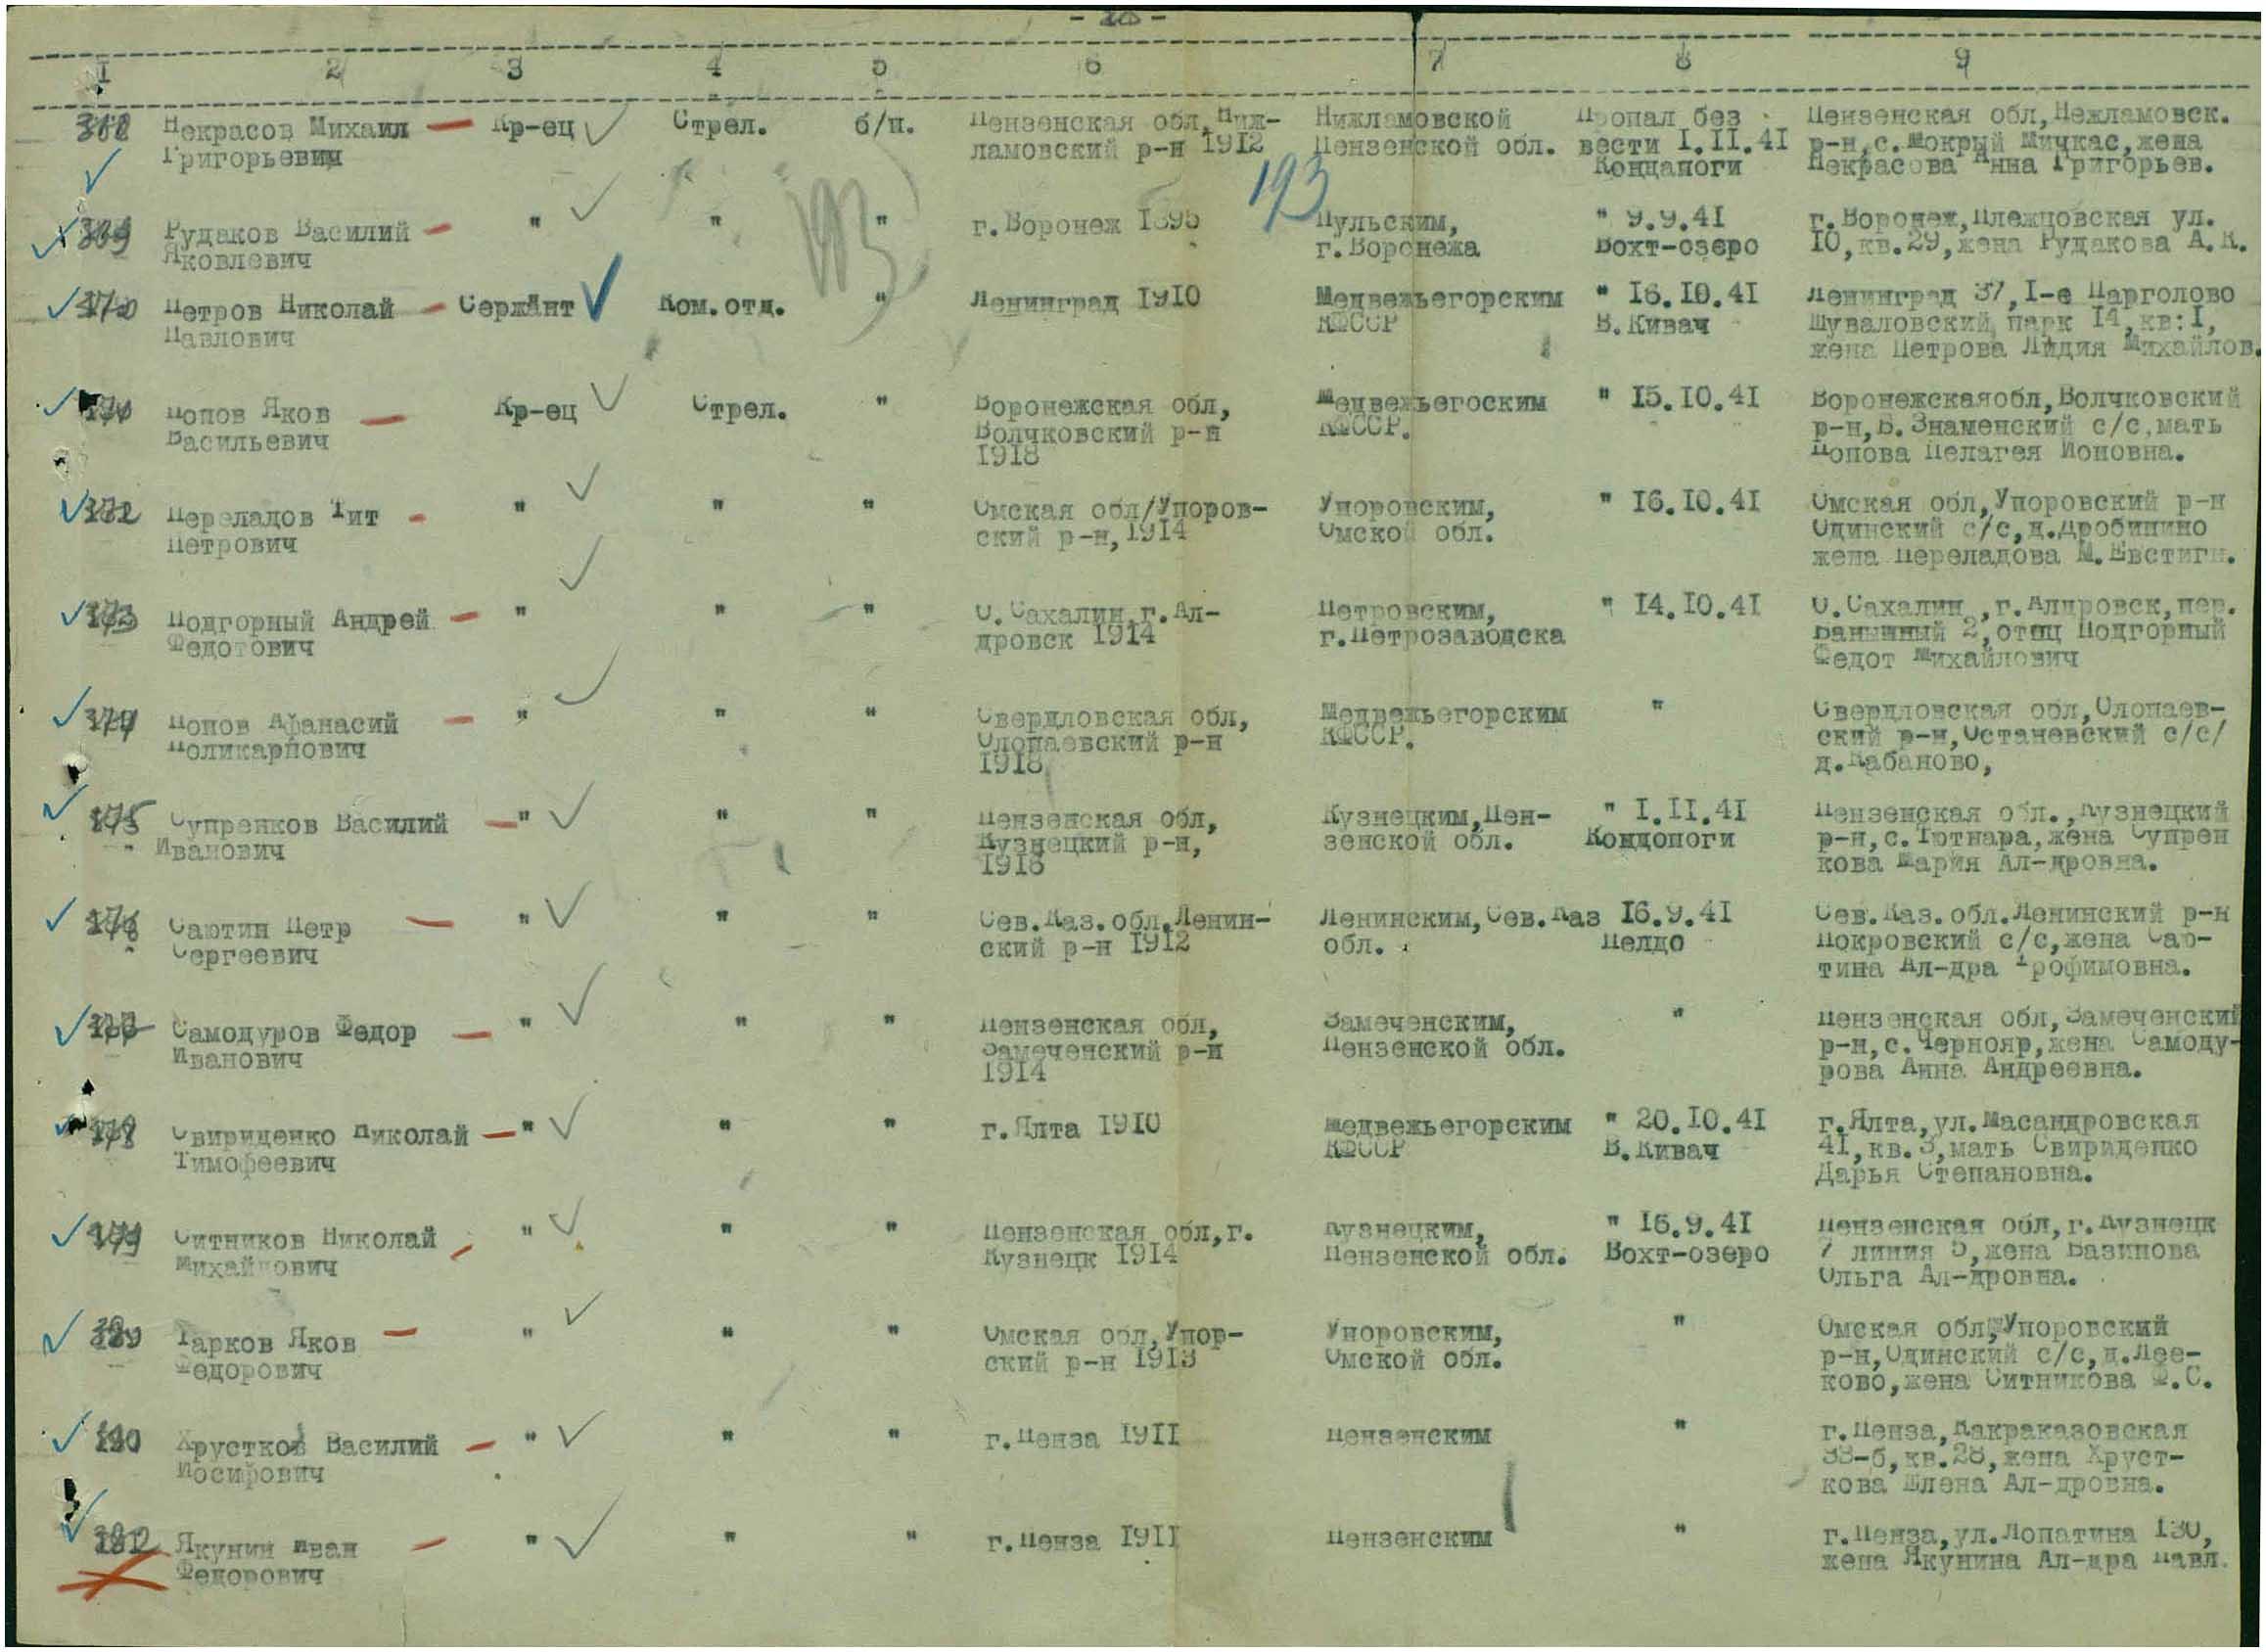 1 2 3 4 5 6 7 8 9
Некрасов Михаил Кр-ец Стрел. б/п. Пензенская обл, Ниж- Нижламовской Пропал без Пензенская обл, Нежламовск.
Григорьевич ламовский р-н 1912 Пензенской обл. вести I.II.4I р-н, с. Мокрый Мичкас, жена
Кондапоги Некрасова Анна Григорьев.
193
193
Рудаков Василий " " " г. Воронеж 1895 Пульским, " 9.9.4I г. Воронеж, Плехцовская ул.
Яковлевич г. Воронежа Вохт-озеро 10, кв. 29, жена Рудакова А.К.
Петров Николай Сержант Ком. отд. " Ленинград 1910 Медвежьегорским " 16.10.4I Ленинград 37, I-е Парголово
Павлович КФССР В. Кивач Шуваловский парк 14, кв: I,
жена Петрова Лидия Михайлов.
Попов Яков Кр-ец Стрел. " Воронежская обл, Медвежьегоским " 15.10.4I Воронежскаяобл, Волчковский
Васильевич Волчковский р-н КФССР. р-н, В. Знаменский с/с, мать
1918 Попова Пелагея Ионовна.
Переладов Тит " " " Омская обл/Упоров- Упоровским, " 16.10.4I Омская обл, Упоровский р-н
Петрович ский р-н, 1914 Омской обл. Одинский с/с, д. Дробинино
жена Переладова М. Евстигн.
Подгорный Андрей " " " О. Сахалин, г. Ал- Петровским, " 14.10.4I О. Сахалин, г. Алдровск, пер.
Федотович дровск 1914 г. Петрозаводска 2, отец Подгорный
Федот Михайлович
Попов Афанасий " " " Свердловская обл, Медвежьегорским " Свердловская обл, Олопаев-
Поликарпович Олопаевский р-н КФССР. ский р-н, Останевский с/с/
1918 д. Кабаново,
175 Супренков Василий " " " Пензенская обл, Кузнецким, Пен- " I.II.4I Пензенская обл., Кузнецкий
Иванович Кузнецкий р-н, зенской обл. Кондопоги р-н, с. Тютнара, жена Супрен
1918 кова Мария Ал-дровна.
Саютин Петр " " " Сев. Каз. обл. Ленин- Ленинским, Сев. Каз 16.9.4I Сев. Каз. обл. Ленинский р-н
Сергеевич ский р-н 1912 обл. Пелдо Покровский с/с, жена Саю-
тина Ал-дра Трофимовна.
Самодуров Федор " " " Пензенская обл, Замеченским, " Пензенская обл, Замеченский
Иванович Замеченский р-н Пензенской обл. р-н, с. Чернояр, жена Самоду-
1914 рова Анна Андреевна.
Свириденко Николай " " " г. Ялта 1910 Медвежьегорским " 20.10.4I г. Ялта, ул. Масандровская
Тимофеевич КФССР В. Кивач 4I, кв. 3, мать Свириденко
Дарья Степановна.
Ситников Николай " " " Пензенская обл, г. Кузнецким, " 16.9.4I Пензенская обл, г. Кузнецк
Михайлович Кузнецк 1914 Пензенской обл. Вохт-озеро 7 линия 5, жена Базинова
Ольга Ал-дровна.
Тарков Яков " " " Омская обл, Упор- Упоровским, " Омская обл, Упоровский
Федорович ский р-н 1913 Омской обл. р-н, Одинский с/с, д. Лее-
ково, жена Ситникова Ф.С.
Хрустков Василий " " " г. Пенза 1911 Пензенским " г. Пенза, Какраказовская
Иосифович 38-б, кв. 28, жена Хруст-
кова Елена Ал-дровна.
Якунин Иван " " " г. Пенза 1911 Пензенским " г. Пенза, ул. Лопатина 130,
Федорович жена Якунина Ал-дра Павл.